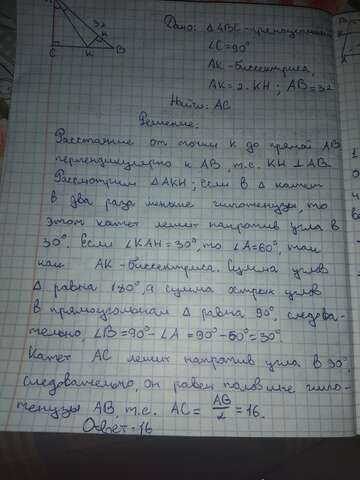 A
32
H
C
K
B
Дано: △ABC-прямоугольный
∠C=90°
AK-биссектриса,
AK=2·KH; AB=32
Найти: AC
Решение:
Расстояние от точки K до прямой AB
перпендикулярно к AB, т.е. KH⊥AB
Рассмотрим △AKH; если в △ катет
в два раза меньше гипотенузы, то
этот катет лежит напротив угла в
30°. Если ∠KAH=30°, то ∠A=60°, так
как AK-биссектриса. Сумма углов
△ равна 180°, а сумма острых углов
в прямоугольном △ равна 90°, следова-
тельно, ∠B=90°-∠A=90°-60°=30°.
Катет AC лежит напротив угла в 30°,
следовательно, он равен половине гипо-
тенузы AB, т.е. AC=AB/2=16.
Ответ:16